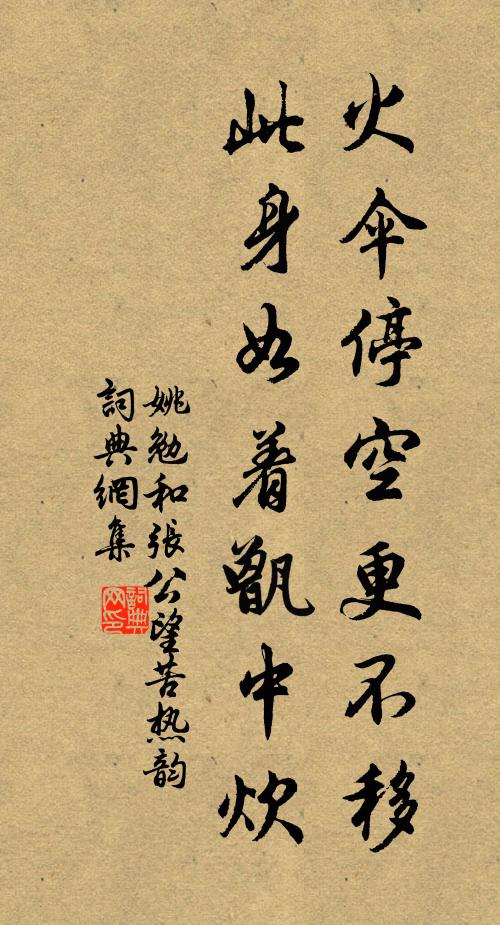 火伞停空更不移
此身如着甑中炊
姚勉和張公望苦热韵
詞典網集
詞典网印